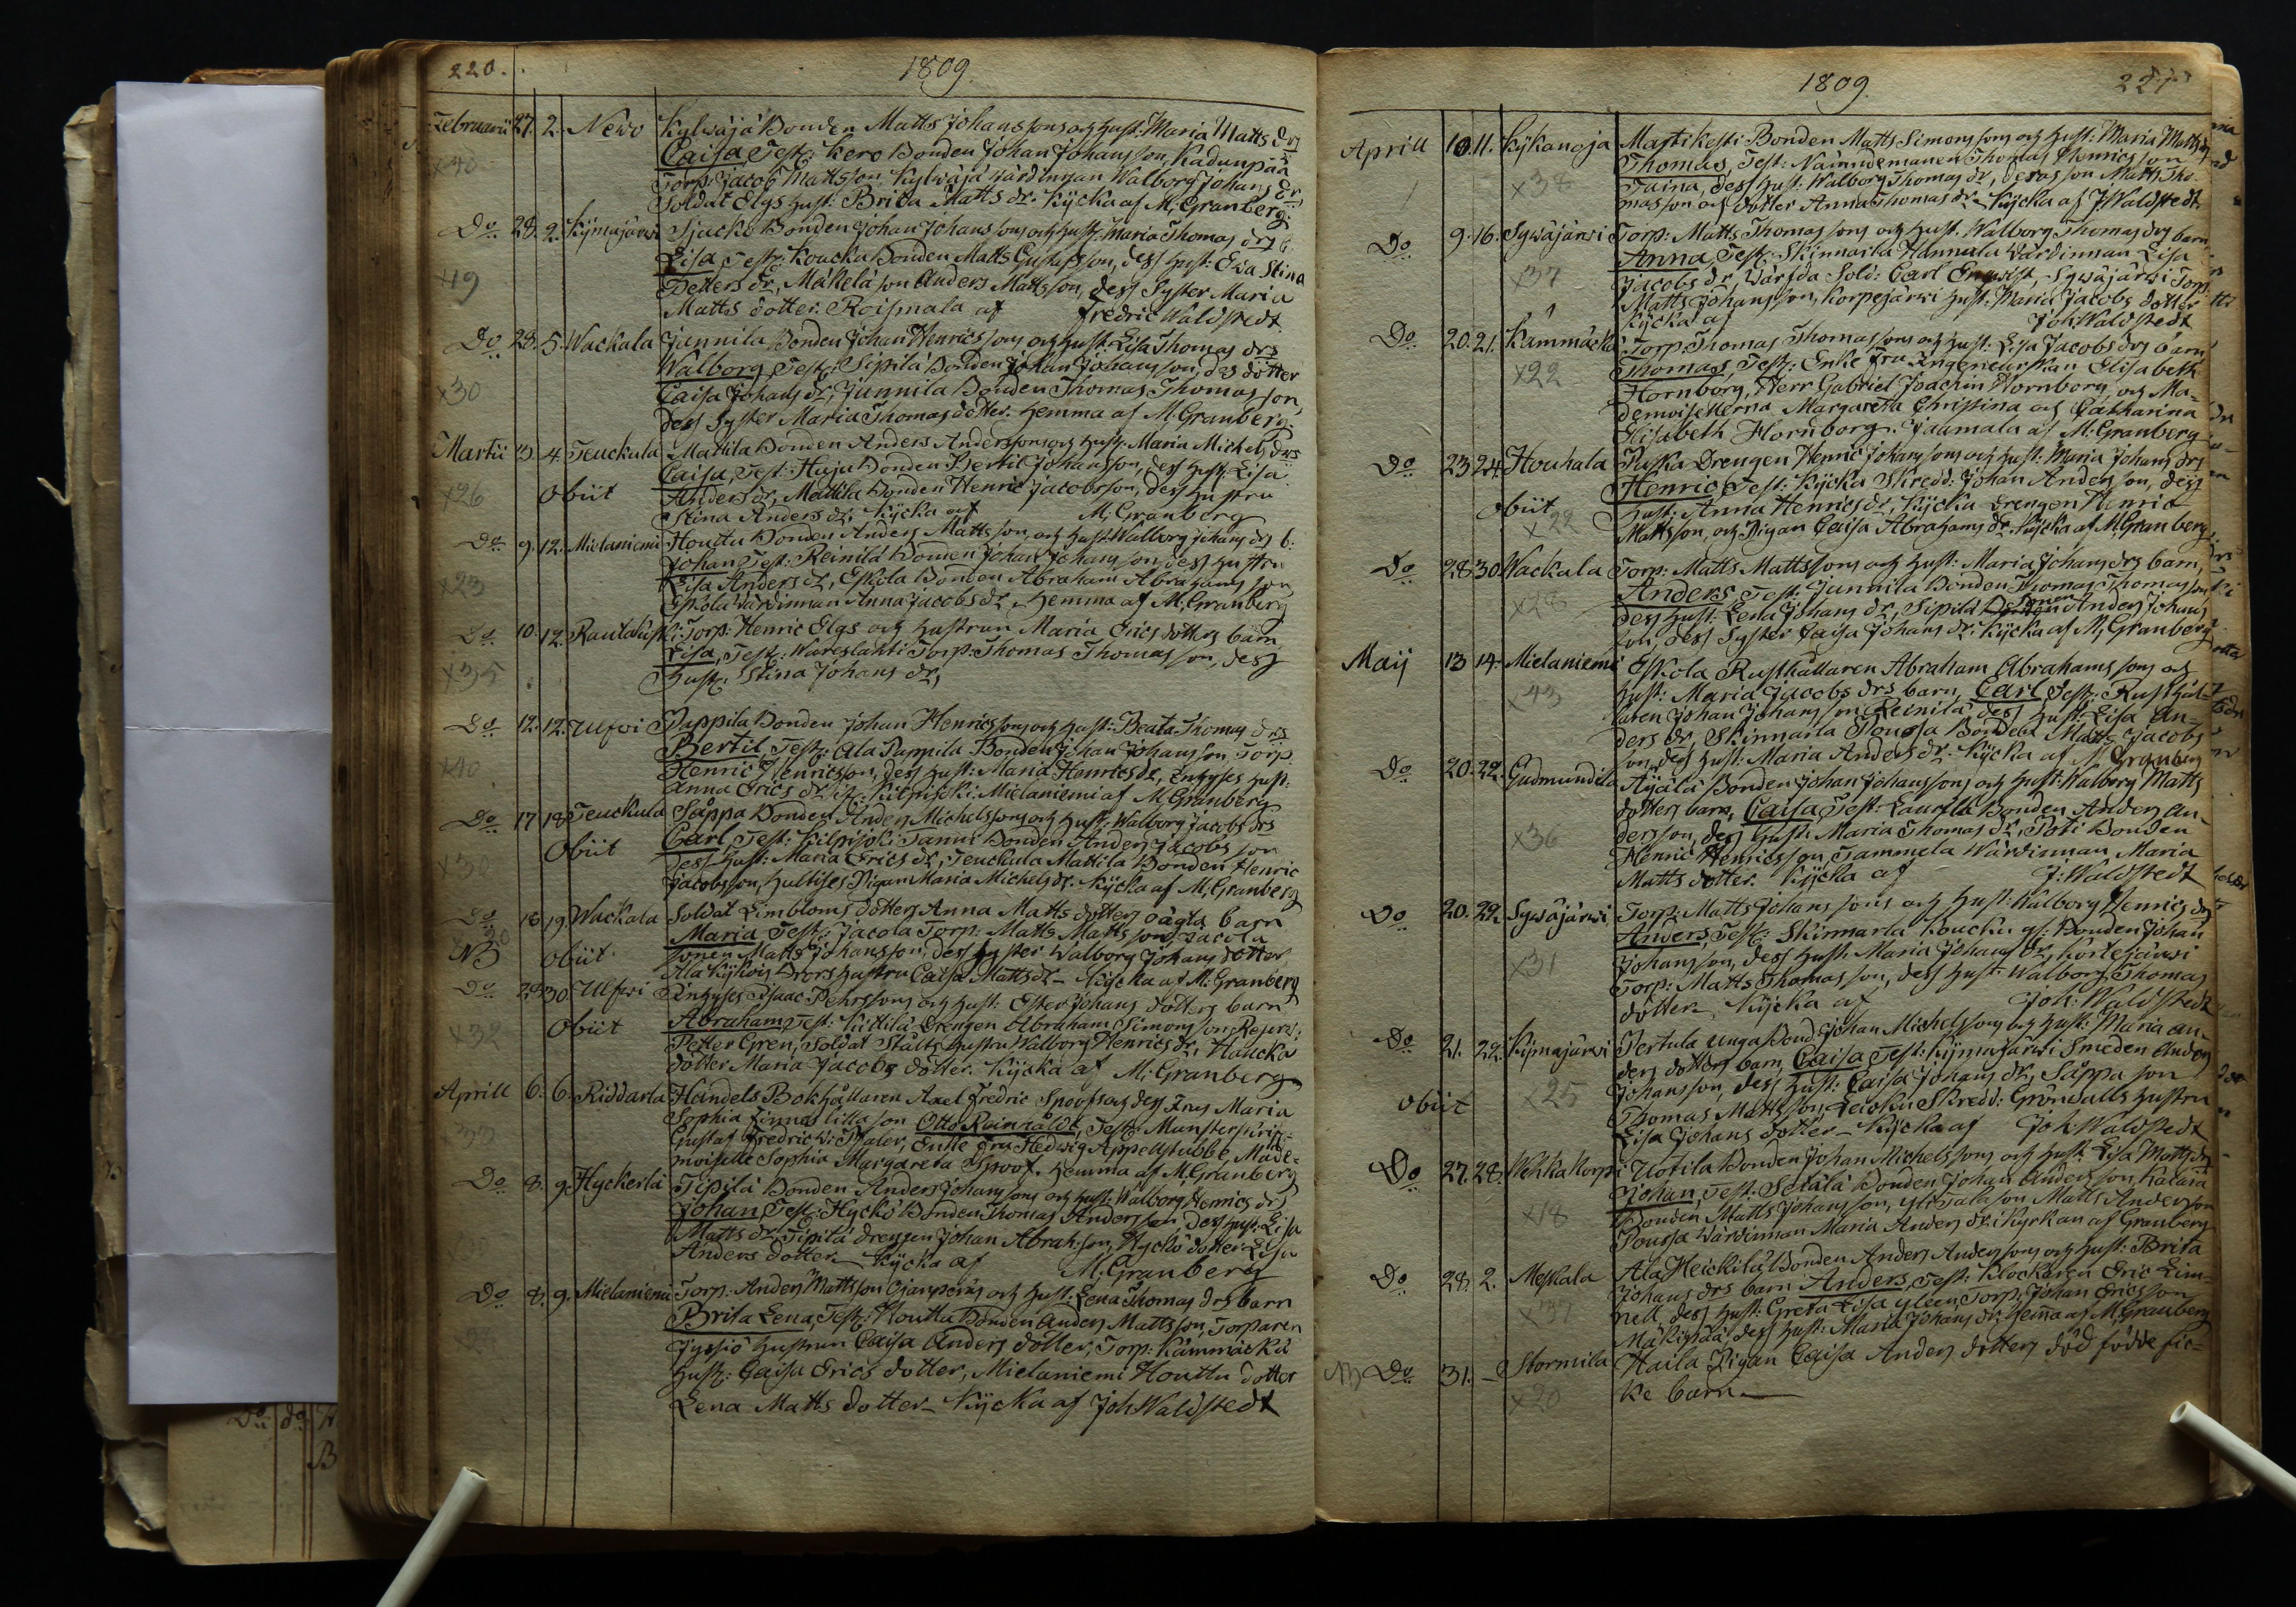 220.
1809.
Februarii 27. 2. Newo Kylwäjä Bonden Matts Johanssons och hust: Maria Matts drs
x40 Caisa, Test: Kero Bonden Johan Johansson, Kadunpää
Torp: Jacob Mattsson Kylwäjä Wärdinnan Walborg Johans dr,
Soldat Elgs hust: Brita Matts dr. Kÿcka af M: Granberg.
Do 28. 2. Kÿmäjärwi Sjacki Bonden Johan Johanssons och hust: Maria Thomas drs b.
x19 Lisa Test: Koucka Bonden Matts Gustafsson, dess hust: Ewa Stina
Petters dr, Mäkelä son Anders Mattsson, dess Syster Maria
Matts dotter. Roismala af Fredric Waldstedt.
Do 28. 5. Wackala Junnila Bonden Johan Henricssons och hust: Lisa Thomas drs
x30 Walborg Test: Sipilä Bonden Johan Johansson, des dotter
Caisa Johans dr, Junnila Bonden Thomas Thomasson,
dess Syster Maria Thomasdotter. Hemma af M. Granberg.
Martii 3. 4. Teuckula Mattila Bonden Anders Anderssons och hust: Maria Michels drs
Caisa, Test: Huju Bonden Bertil Johansson, dess hust: Lisa
x26 Obiit Anders dr, Mattila Bonden Henric Jacobsson, dess hustru
Stina Anders dr. Kÿcka af M: Granberg
Do 9. 12. Mielaniemi Houttu Bonden Anders Mattsson, och hust: Walborg Johans drs b:
Johan Test: Reinilä Bonden Johan Johansson, dess hustru
x23 Lisa Anders dr, Eskola Bonden Abraham Abrahamsson
Eskola Wärdinnan Anna Jacobs dr. Hemma af M. Granberg
Do 10. 12. Torp: Henric Elgs och hustrun Maria Erics dotters barn
Lisa, Test: Wareslahti Torp: Thomas Thomasson, dess
x35 Hust: Stina Johans dr,
Do 12. 12. Ulfwi Pappila Bonden Johan Henricssons och hust: Beata Thomas drs
Bertil, Test: Ala Pappila Bonden Johan Johansson Torp.
x40 Henric Henricsson, dess hust: Maria Henrics dr, Enhyses hust:
Anna Erics dr Mielaniemi af M. Granberg
Do 17 18 Teuckula Såppa Bonden Anders Michelssons och hust: Walborg Jacobs drs
Obiit Carl, Test: Kilpijoki Tanni Bonden Anders Jacobsson
x30 dess hust: Maria Erics dr, Teuckula Mattila Bonden Henric
Jacobsson, Hultises Pigan Maria Michels dr. Kÿcka af M: Granberg
Do 18. 19. Wackala Soldat Limbloms dotters Anna Matts dotters oägta barn
x20 Maria Test: Jacola Torp: Matts Mattsson, Jacola
NB Obiit sonen Matts Johansson, dess syster Walborg Johans dotter,
Ala Brors hustru Caisa Matts dr – Kÿcka af M: Granberg
Do 28. 30. Ulfwi Enhyses Isaac Pehrssons och hust: Ester Johans dotters barn
Obiit Abraham Test: Kittilä Drengen Abraham Simonsson, Reserv:
x32 Petter Gren, Soldat Stålts hustru Walborg Henrics dr, Haucka
dotter Maria Jacobs dotter. Kÿcka af M. Granberg
Aprill 6. 6. Riddarla Handels Bokhållaren Axel Fredric Spoofs och dess Frus Maria
Sophia Finnas lilla son Otto Reinhåldt, Test: Munsterskrif:
x33 Gustaf Fredric Thaler, Enke Fru Hedwig Appelstubbe, Made-
moiselle Sophia Margareta Spoof. Hemma af M. Granberg
Do 8. 9. Hyckerlä Tipilä Bonden Anders Johanssons och hust: Walborg Henrics drs
Johan, Test: Hyckö Bonden Thomas Andersson, dess hust: Lisa
Matts dr, Tipilä drengen Johan Abrah:son, Hyckö dotter Lisa
Anders dotter. Kÿcka af M: Granberg
Do 8. 9. Mielaniemi Torp: Anders Mattsson Ojanperäs och hust: Lena Thomas drs barn
Brita Lena, Test: Houttu Bonden Anders Mattsson, Torparen
Jyssiö hustrun Caisa Anders dotter, Torp: Kämmäckä
hust: Caisa Erics dotter, Mielaniemi Houttu dotter
Lena Matts dotter – Kÿcka af Joh Waldstedt
1809.
221
Aprill 10. 11. Kÿkanoja Mastikesti Bonden Matts Simonssons och hust: Maria Matts drs
x38 Thomas, Test: Nämndemanen Thomas Henricsson
Taina, dess hust: Walborg Thomas dr, deras son Matts Tho-
masson och dotter Anna Thomas dr. Kÿcka af J. Waldstedt
Do 9. 16. Sywäjärwi Torp: Matts Thomassons och hust: Walborg Thomas drs barn
Anna, Test: Skinnarla Hannula Wärdinnan Lisa
x37 Jacobs dr, Wärfda Sold: Carl Enqwist, Sywäjärwi Torp:
Matts Johansson, Korpejärwi hust: Maria Jacobs dotter
Kÿcka af Joh Waldstedt
Do 20. 21. Kämmäckä Torp: Thomas Thomassons och hust: Lisa Jacobs drs barn
x22 Thomas, Test: Enke Fru Ingeneurskan Elisabeth
Hornborg, Herr Gabriel Joachim Hornborg, och Ma-
demoisellerna Margareta Christina och Catharina
Elisabeth Hornborg. Jaamala af M: Granberg
Do 23 24. Houhala Puska Drengen Henric Johanssons och hust: Maria Johans drs
Henric Test: Kÿcka Skredd: Johan Andersson, dess
Obiit x22 hust: Anna Henrics dr, Kÿcka Drengen Henric
Mattsson, och Pigan Caisa Abrahams dr. Kÿcka af M. Granberg.
Do 28. 30. Wackala Torp: Matts Mattssons och hust: Maria Johans drs barn,
Anders Test: Junnila Bonden Thomas Thomasson
x28 dess hust: Lena Johans dr, Sipilä sonen Anders Johans
son, dess Syster Caisa Johans dr. Kÿcka af M. Granberg
Maij 13 14. Mielaniemi Eskola Rusthållaren Abraham Abrahamssons och
x43 hust: Maria Jacobs drs barn, Carl Test: Rusthål-
laren Johan Johansson Reinilä dess hust: Lisa An-
ders dr, Skinnarla Poussa Bonden Matts Jacobs
son, dess hust: Maria Anders dr. Kÿcka af M Granberg
Do 20. 22. Gudmundila Äijälä Bonden Johan Johanssons och hust: Walborg Matts
dotters barn, Caisa, Test: Laurila Bonden Anders An-
x36 dersson, dess hust: Maria Thomas dr, Poti Bonden
Henric Henricsson, Tammela Wärdinnan Maria
Matts dotter. Kÿcka af J: Waldstedt
Do 20. 22. Sywäjärwi Torp: Matts Johanssons och hust: Walborg Henrics drs
Anders, Test: Skinnarla Koucku gl: Bonden Johan
x31 Johansson, dess hust: Maria Johans dr, Kortejärwi
Torp: Matts Thomasson, dess hust: Walborg Thomas
dotter. Kÿcka af Joh: Waldstedt
Do 21. 22. Kÿmäjärwi Pertula unga Bond: Johan Michelssons och hust: Maria An-
ders dotters barn, Caisa Test: Kÿmäjärwi Smeden Anders
Obiit x25 Johansson, dess hust: Caisa Johans dr, Säppä son
Thomas Mattsson, Leicku Skredd: Gröndalls hustru
Lisa Johans dotter – Kÿcka af Joh Waldstedt
Do 27. 28. Wehka Korpi Uotila Bonden Johan Michelssons och hust: Lisa Matts drs
Johan, Test: Setälä Bonden Johan Andersson, Kacara
x18 Bonden Matts Johansson, yli Tala son Matts Andersson
Poussa Wärdinnan Maria Anders dr. i Kyrkan af Granberg
Do 28. 2. Meskala Ala Heickilä Bonden Anders Anderssons och hust: Brita
Johans drs barn Anders, Test: Klockaren Eric Lim-
x37 nell, dess hust: Greta Lisa Torp: Johan Ericsson
dess hust: Maria Johans dr. Hema af M: Granberg
NB Do 31. – Stormila Haila Pigan Caisa Anders dotters död födde flic-
x20 ke barn –